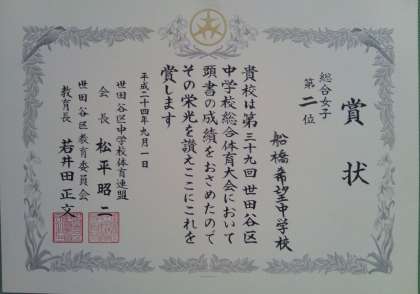 賞状
総合女子
第二位
船橋希望中学校
貴校は第三十九回世田谷区
中学校総合体育大会において
頭書の成績をおさめたので
その栄光を讃えここにこれを
賞します
平成二十四年九月一日
世田谷区中学校体育連盟
会長 松平昭二
世田谷区教育委員会
教育長 若井田正文